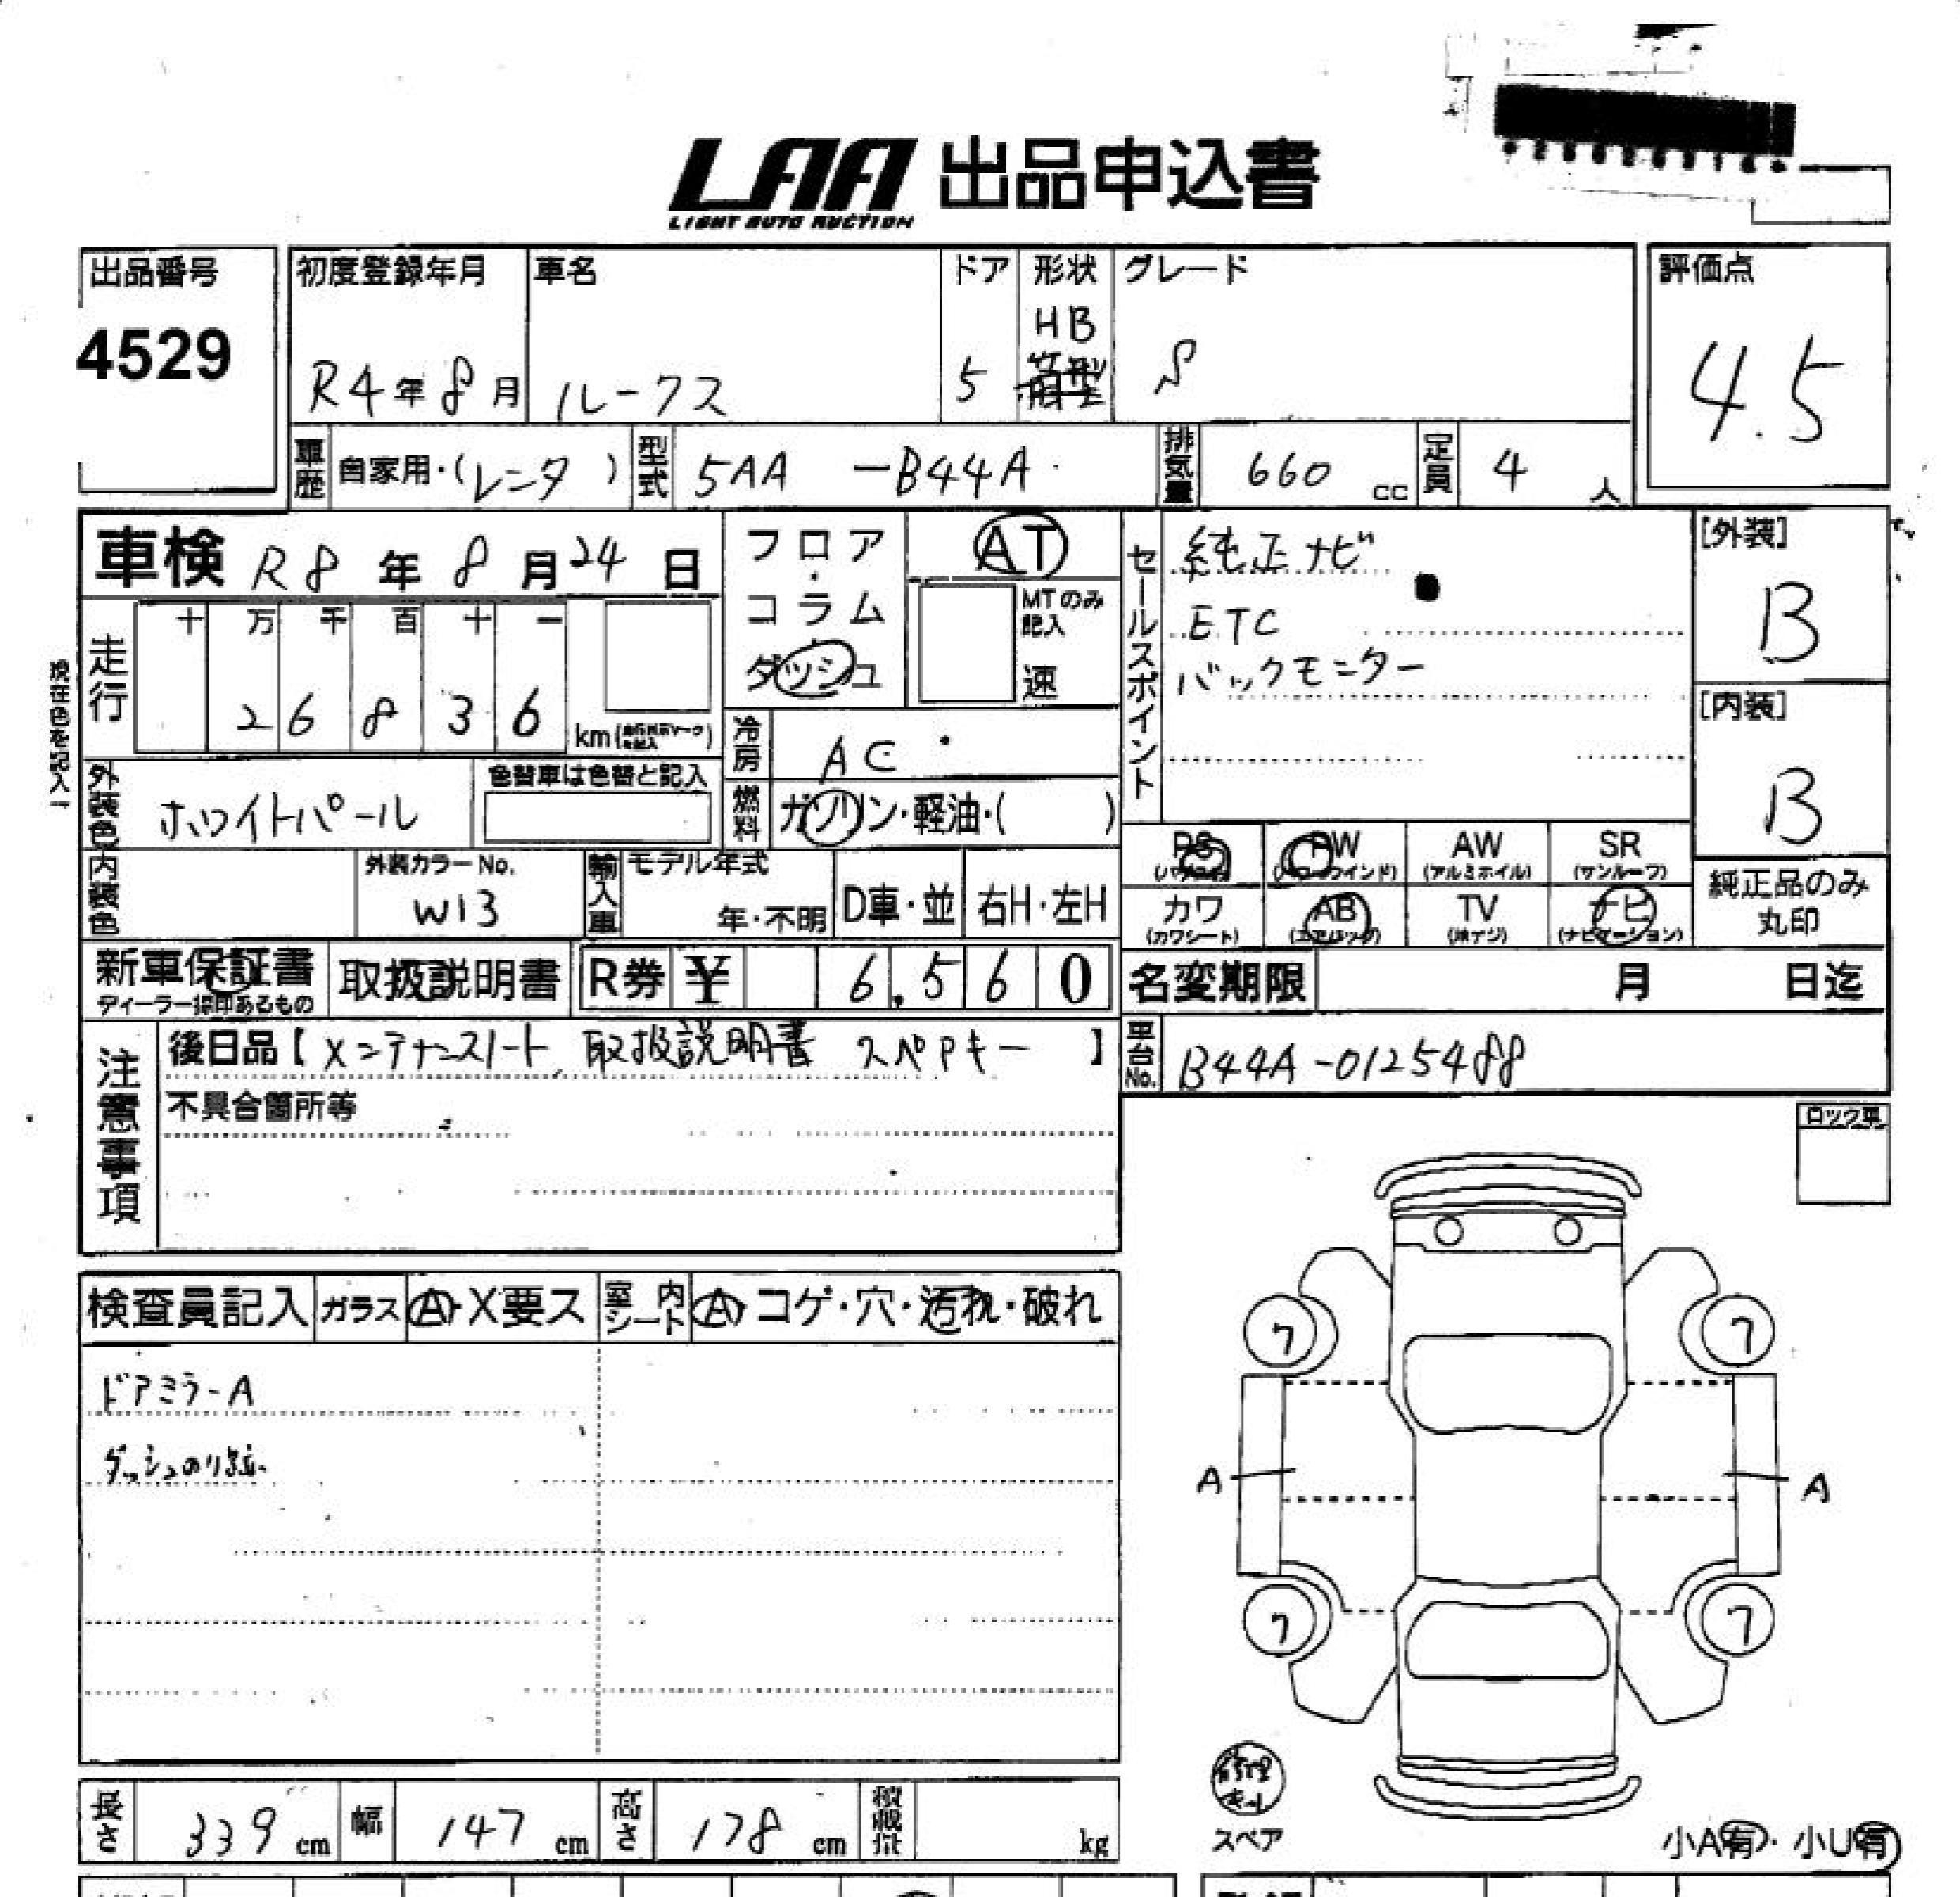 LAA 出品申込書
LIGHT AUTO AUCTION
出品番号
4529
初度登録年月
R4年8月
車名
ルークス
ドア
5
形状
HB
箱型
グレード
S
評価点
4.5
車歴 自家用・(レンタ)
型式 5AA -B44A
排気量 660 cc
定員 4 人
車検 R8年8月24日
フロア・コラム
ダッシュ
AT
MTのみ記入
速
セールスポイント
純正ナビ
ETC
バックモニター
[外装]
B
[内装]
B
現在色を記入
走行
十 万 千 百 十 一
2 6 8 3 6 km
冷房 AC
外装色 ホワイトパール
色替車は色替と記入
燃料 ガソリン・軽油・( )
PS
PW
AW
(アルミホイル)
SR
(サンルーフ)
カワ
(カワシート)
AB
(エアバッグ)
TV
(地デジ)
ナビ
(ナビゲーション)
純正品のみ
丸印
内装色
外装カラーNo.
W13
輸入車
モデル年式
年・不明
D車・並
右H・左H
新車保証書
ディーラー採印あるもの
取扱説明書
R券 ¥ 6,560
名変期限 月 日迄
注意事項
後日品【メンテナンスノート、取扱説明書 スペアキー】
不具合箇所等
車台No. B44A-0125488
ロック車
検査員記入
ガラス
A・X要ス
室内シート
A・コゲ・穴・汚れ・破れ
ドアミラーA
ダッシュのり跡
7
7
A
A
7
7
長さ 339 cm
幅 147 cm
高さ 178 cm
積載量 kg
修理キット
スペア
小A有・小U有